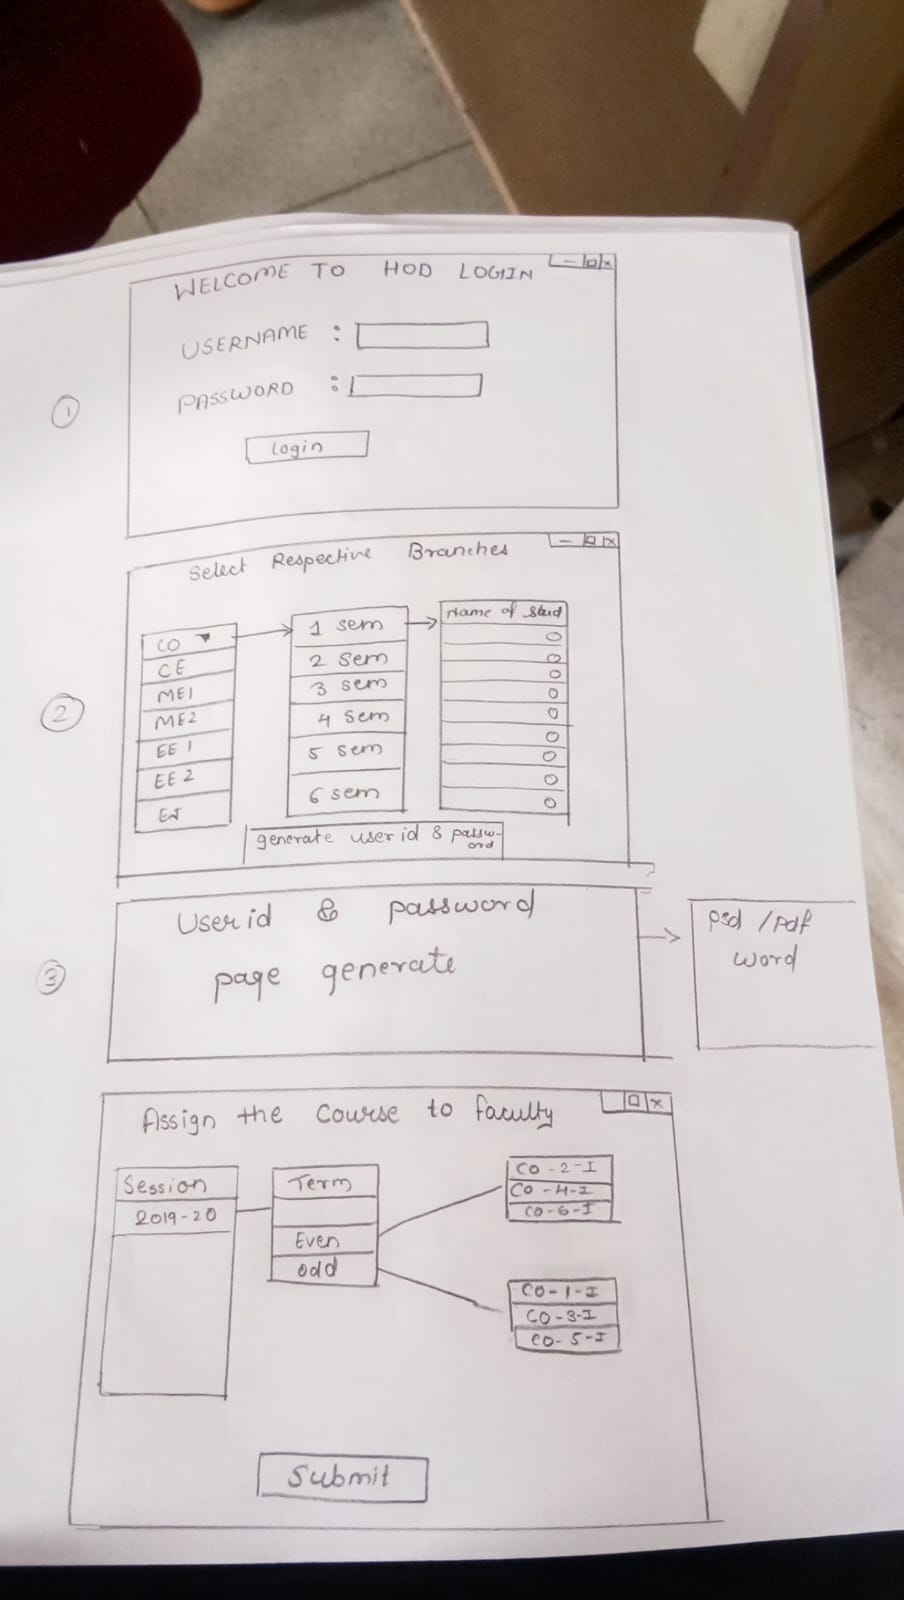 WELCOME TO HOD LOGIN
- □ x
USERNAME :
PASSWORD :
Login
1
Select Respective Branches
- □ x
CO
CE
ME1
ME2
EE 1
EE 2
EJ
1 sem
2 sem
3 sem
4 sem
5 sem
6 sem
Name of stud
generate user id & passw-
ord
2
User id & password
page generate
3
psd / pdf
word
Assign the course to faculty
□ x
Session
2019-20
Term
Even
odd
CO - 2 - I
CO - 4 - I
CO - 6 - I
CO - 1 - I
CO - 3 - I
CO - 5 - I
Submit